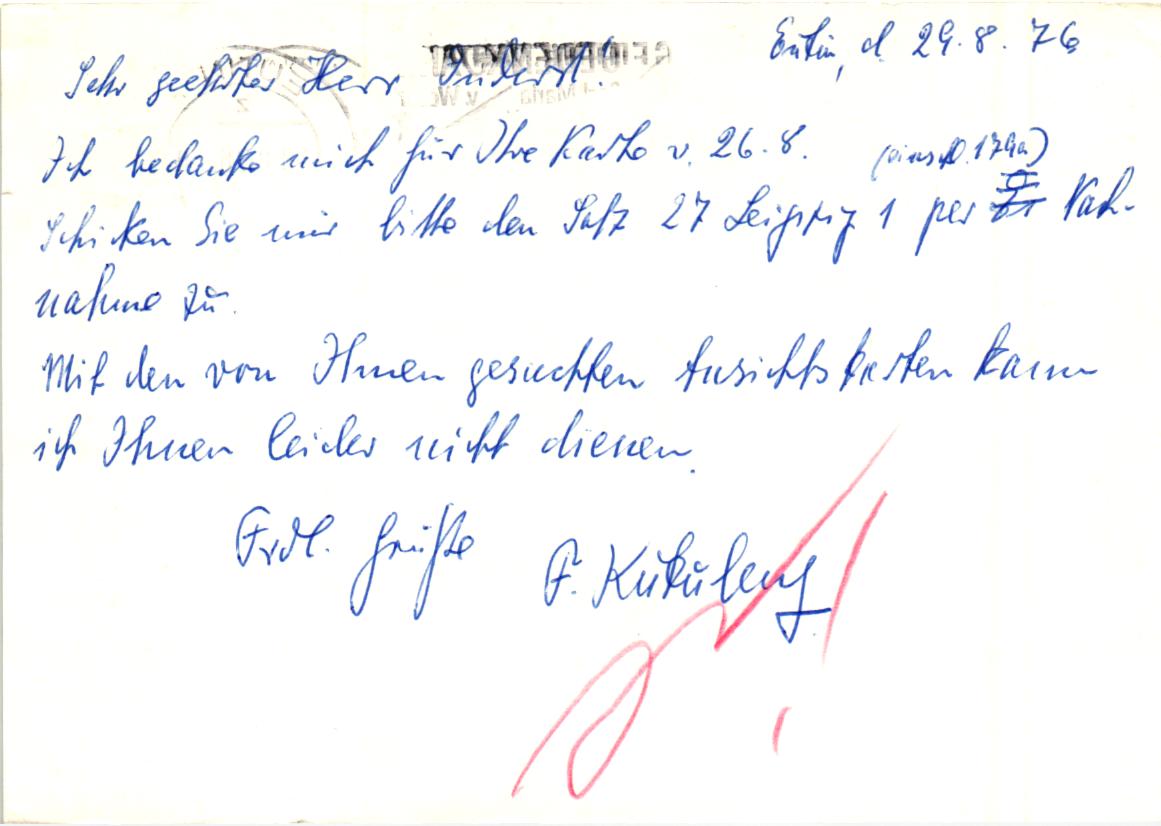 Eutin, d. 29.8.76
Sehr geehrter Herr Inderst!
Ich bedanke mich für Ihre Karte v. 26.8.
(einschl. 179a)
Schicken Sie mir bitte den Satz 27 Leipzig 1 per Nach-
nahme zu.
Mit den von Ihnen gesuchten Ansichtskarten kann
ich Ihnen leider nicht dienen.
Frdl. Grüße F. Kukulenz